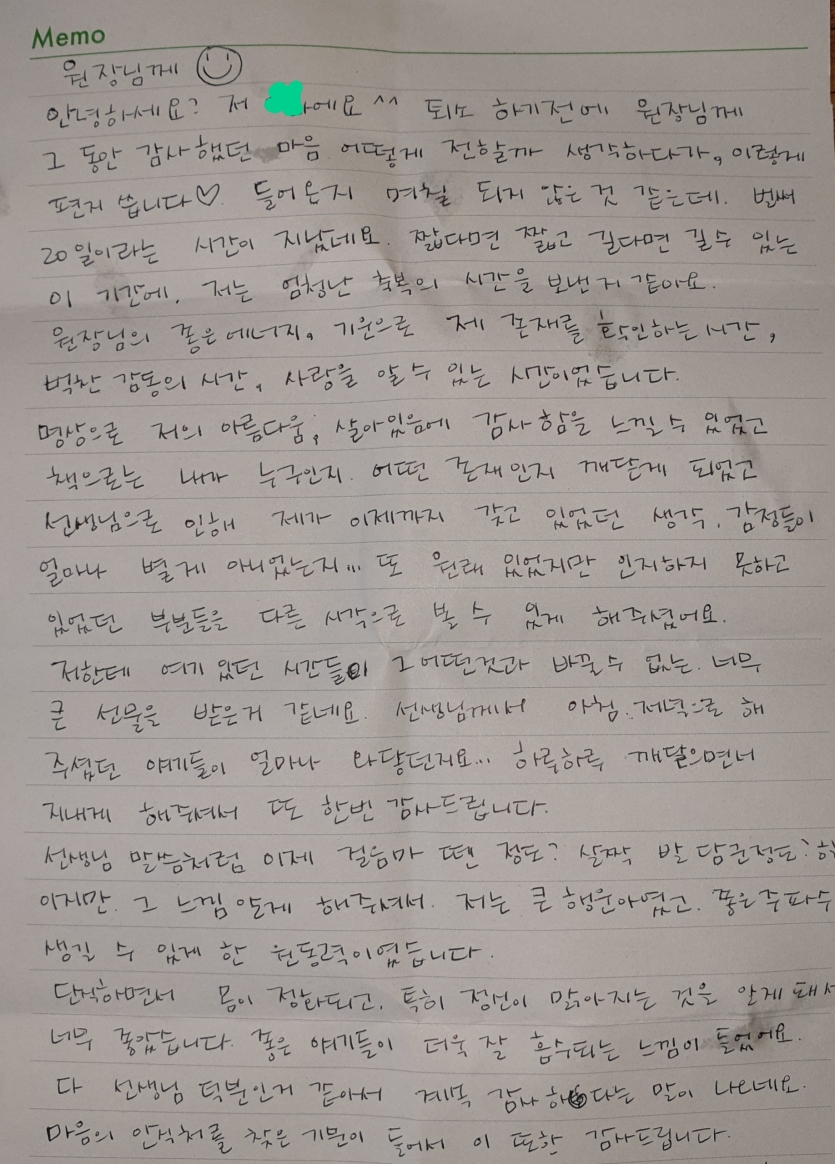 Memo
원장님께
안녕하세요? 저 에요 ^^ 퇴소 하기전에 원장님께
그 동안 감사했던 마음 어떻게 전할까 생각하다가, 이렇게
편지 씁니다♡ 들어온지 며칠 되지 않은 것 같은데. 벌써
20일이라는 시간이 지났네요. 짧다면 짧고 길다면 길수 있는
이 기간에, 저는 엄청난 축복의 시간을 보낸거 같아요.
원장님의 좋은에너지, 기운으로 제 존재를 확인하는시간,
벅찬 감동의 시간, 사랑을 알 수 있는 시간이었습니다.
명상으로 저의 아름다움, 살아있음에 감사함을 느낄수 있었고
책으로는 내가 누구인지. 어떤 존재인지 깨닫게 되었고
선생님으로 인해 제가 이제까지 갖고 있었던 생각, 감정들이
얼마나 별게 아니었는지... 또 원래 있었지만 인지하지 못하고
있었던 부분들을 다른 시각으로 볼 수 있게 해주셨어요.
저한테 여기 있던 시간들이 그어떤것과 바꿀수 없는. 너무
큰 선물을 받은거 같네요. 선생님께서 아침.저녁으로 해
주셨던 얘기들이 얼마나 와닿던지요... 하루하루 깨달으면서
지내게 해주셔서 또 한번 감사드립니다.
선생님 말씀처럼 이제 걸음마 뗀 정도? 살짝 발 담군정도?
이지만. 그 느낌 알게 해주셔서. 저는 큰 행운아였고. 좋은주파수
생길 수 있게 한 원동력이였습니다.
단식하면서 몸이 정화되고, 특히 정신이 맑아지는 것을 알게 돼서
너무 좋았습니다. 좋은 얘기들이 더욱 잘 흡수되는 느낌이 들었어요.
다 선생님 덕분인거 같아서 계속 감사하다는 말이 나오네요.
마음의 안식처를 찾은 기분이 들어서 이 또한 감사드립니다.